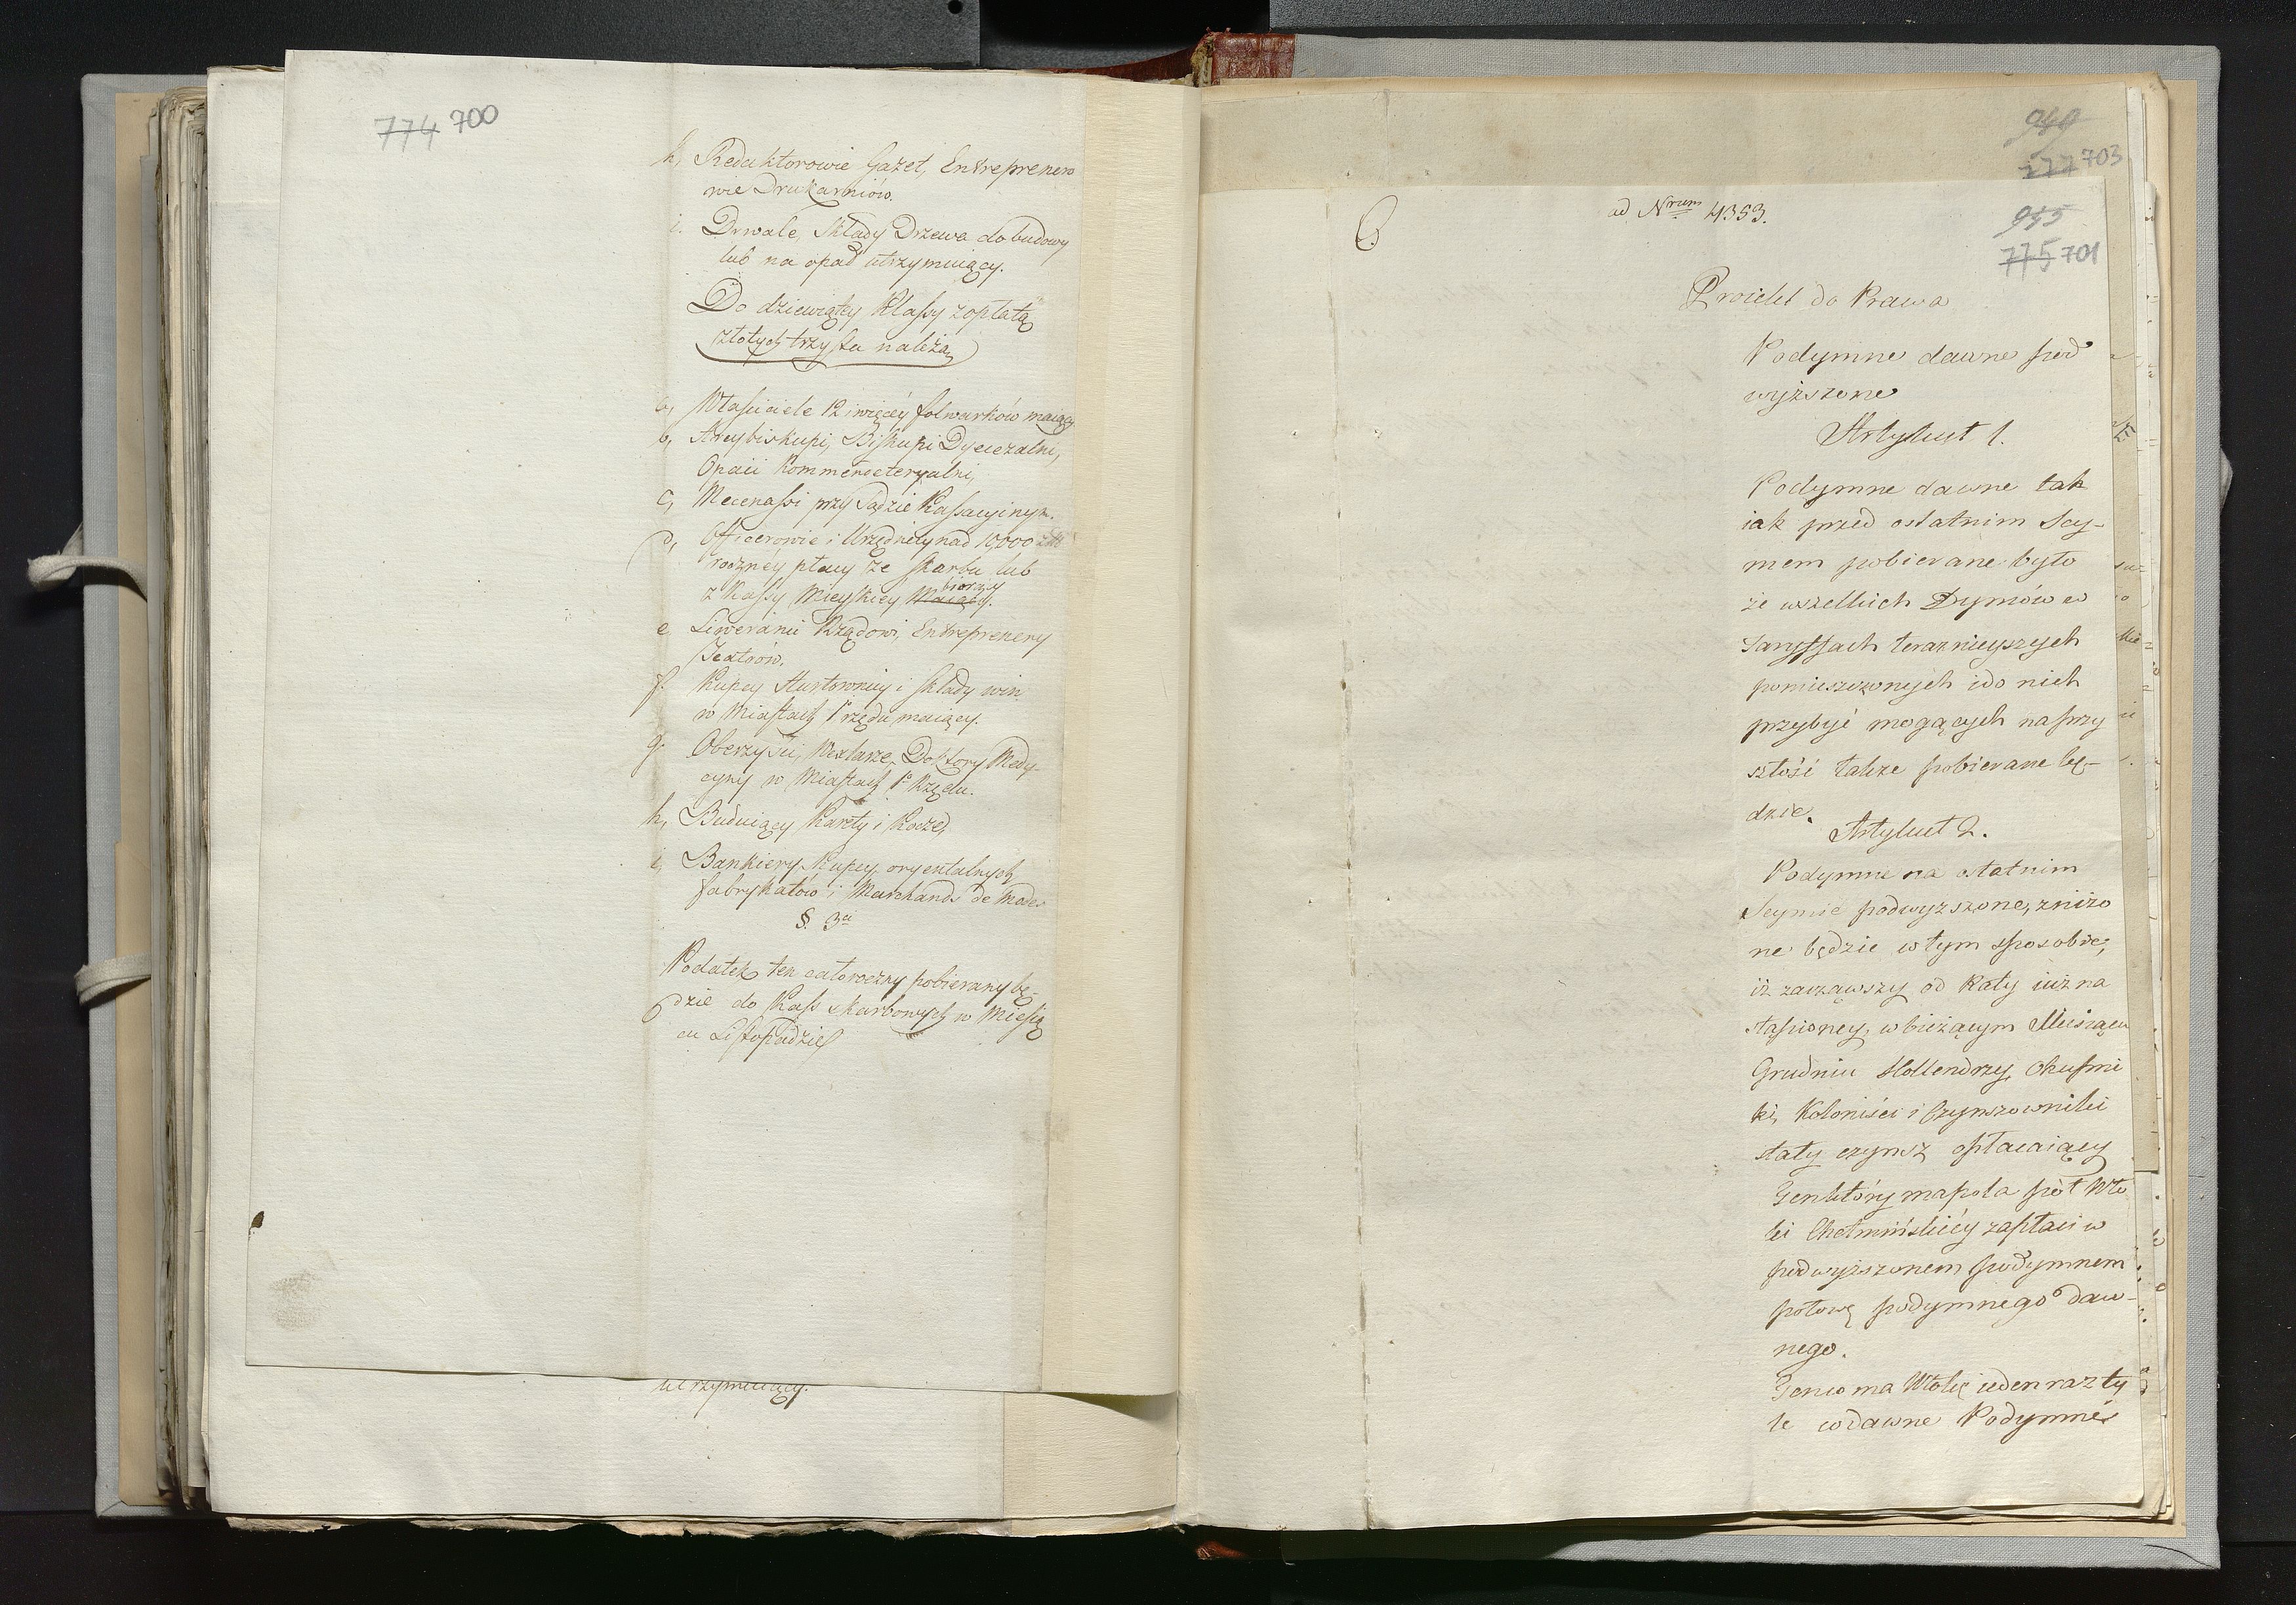 774 700
h, Redaktorowie Gazet, Entreprenero
wie Drukarniów.
i. Drwale, Składy Drzewa do budowy
lub na opał utrzymuiący.
Do dziewiątey Klassy zopłatą
złotych trzysta należą
a, Właściciele 12 i więcéy folwarków maiący
b, Arcybiskupi, Biskupi Dyecezalni,
Opaci
c, Mecenassi przy Sądzie Kassacyinym.
d, Officerowie i Urzędnicy nad 10,000
roczney płacy ze Skarbu lub
biorący
z Kassy Mieyskiey Maiący.
e, Liweranci Rządowi, Entreprenery
Teatrów.
f. Kupcy Hurtownicy i składy win
w Miastach 1o rzędu maiący.
g. Oberzyści, Wexlarze, Doktory Medy-
cyny w Miastach 1o Rzędu.
h, Buduiący Karéty i Kocze,
i, Bankiery, Kupcy oryentalnych
fabrykatów i Marchands de Modes
§. 3ci
Podatek ten całoroczny pobierany bę-
dzie do Kass skarbowych w Miesią
cu Listopadzie
utrzymuiący.
949
777 703
ad Nrum 4353.
955
775 701
C.
Proiekt do Prawa
Podymne dawne pod
wyższone
Artykuł 1.
Podymne dawne tak
iak przed ostatnim Sey-
mem pobierane było
ze wszelkich Dymów w
Taryffach teraznieyszych
pomieszczonych i do nich
przybyć mogących na przy
szłość także pobierane bę-
dzie.
Artykuł 2.
Podymne na ostatnim
Seymie podwyzszone, zniżo
ne będzie w tym sposobie,
iż zacząwszy od Raty iuż na
stąpioney, w bieżącym Miesiącu
Grudniu Hollendrzy, Okupni
ki, Koloniści i Czynszowniki
stały czynsz opłacaiący
Ten który ma poła pół Włó
ki Chełmińskiéy zapłaci w
podwyższonem podymnem
połowę podymnego daw-
nego.
Ten co ma Włókę ieden raz ty
le co dawne Podymne